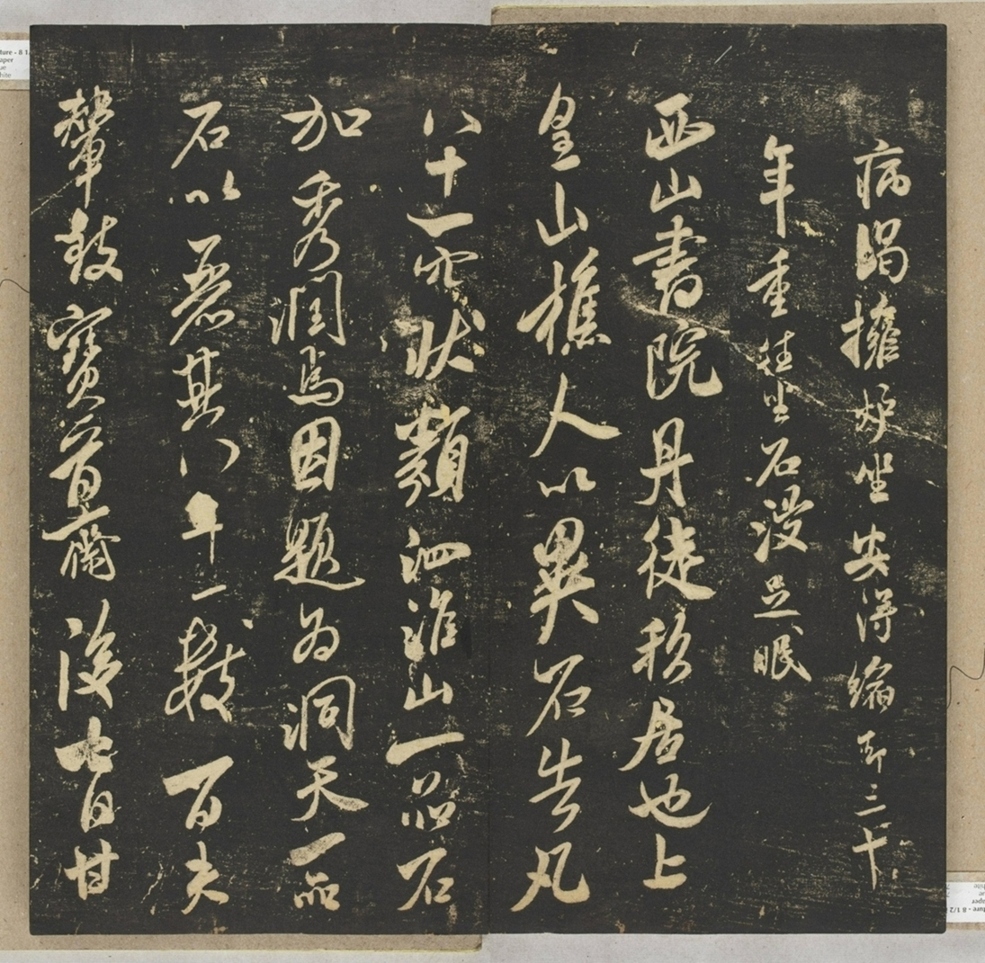 病渴擁炉坐安得縮却三十
年重往坐石浸足眠
西山書院丹徒移居也上
皇山樵人以異石告凡
八十一穴狀類泗淮山一品石
加秀潤焉因題為洞天一品
石以麗其八十一數百夫
輦致寶晉齋後七日甘